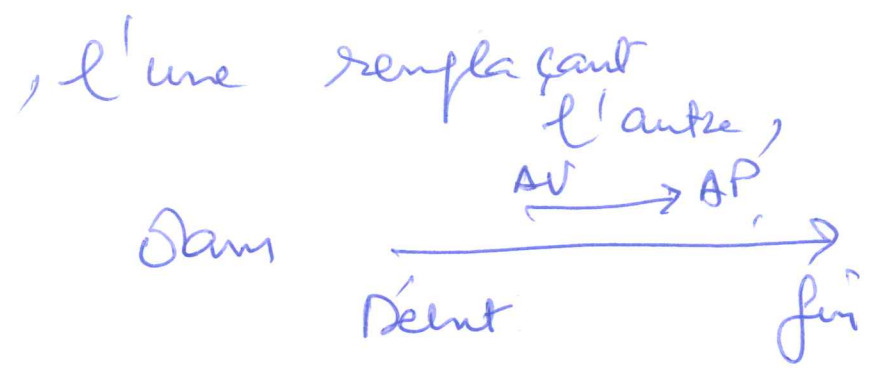 , l'une remplaçant
l'autre,
AV → AP
Sans
Début fin